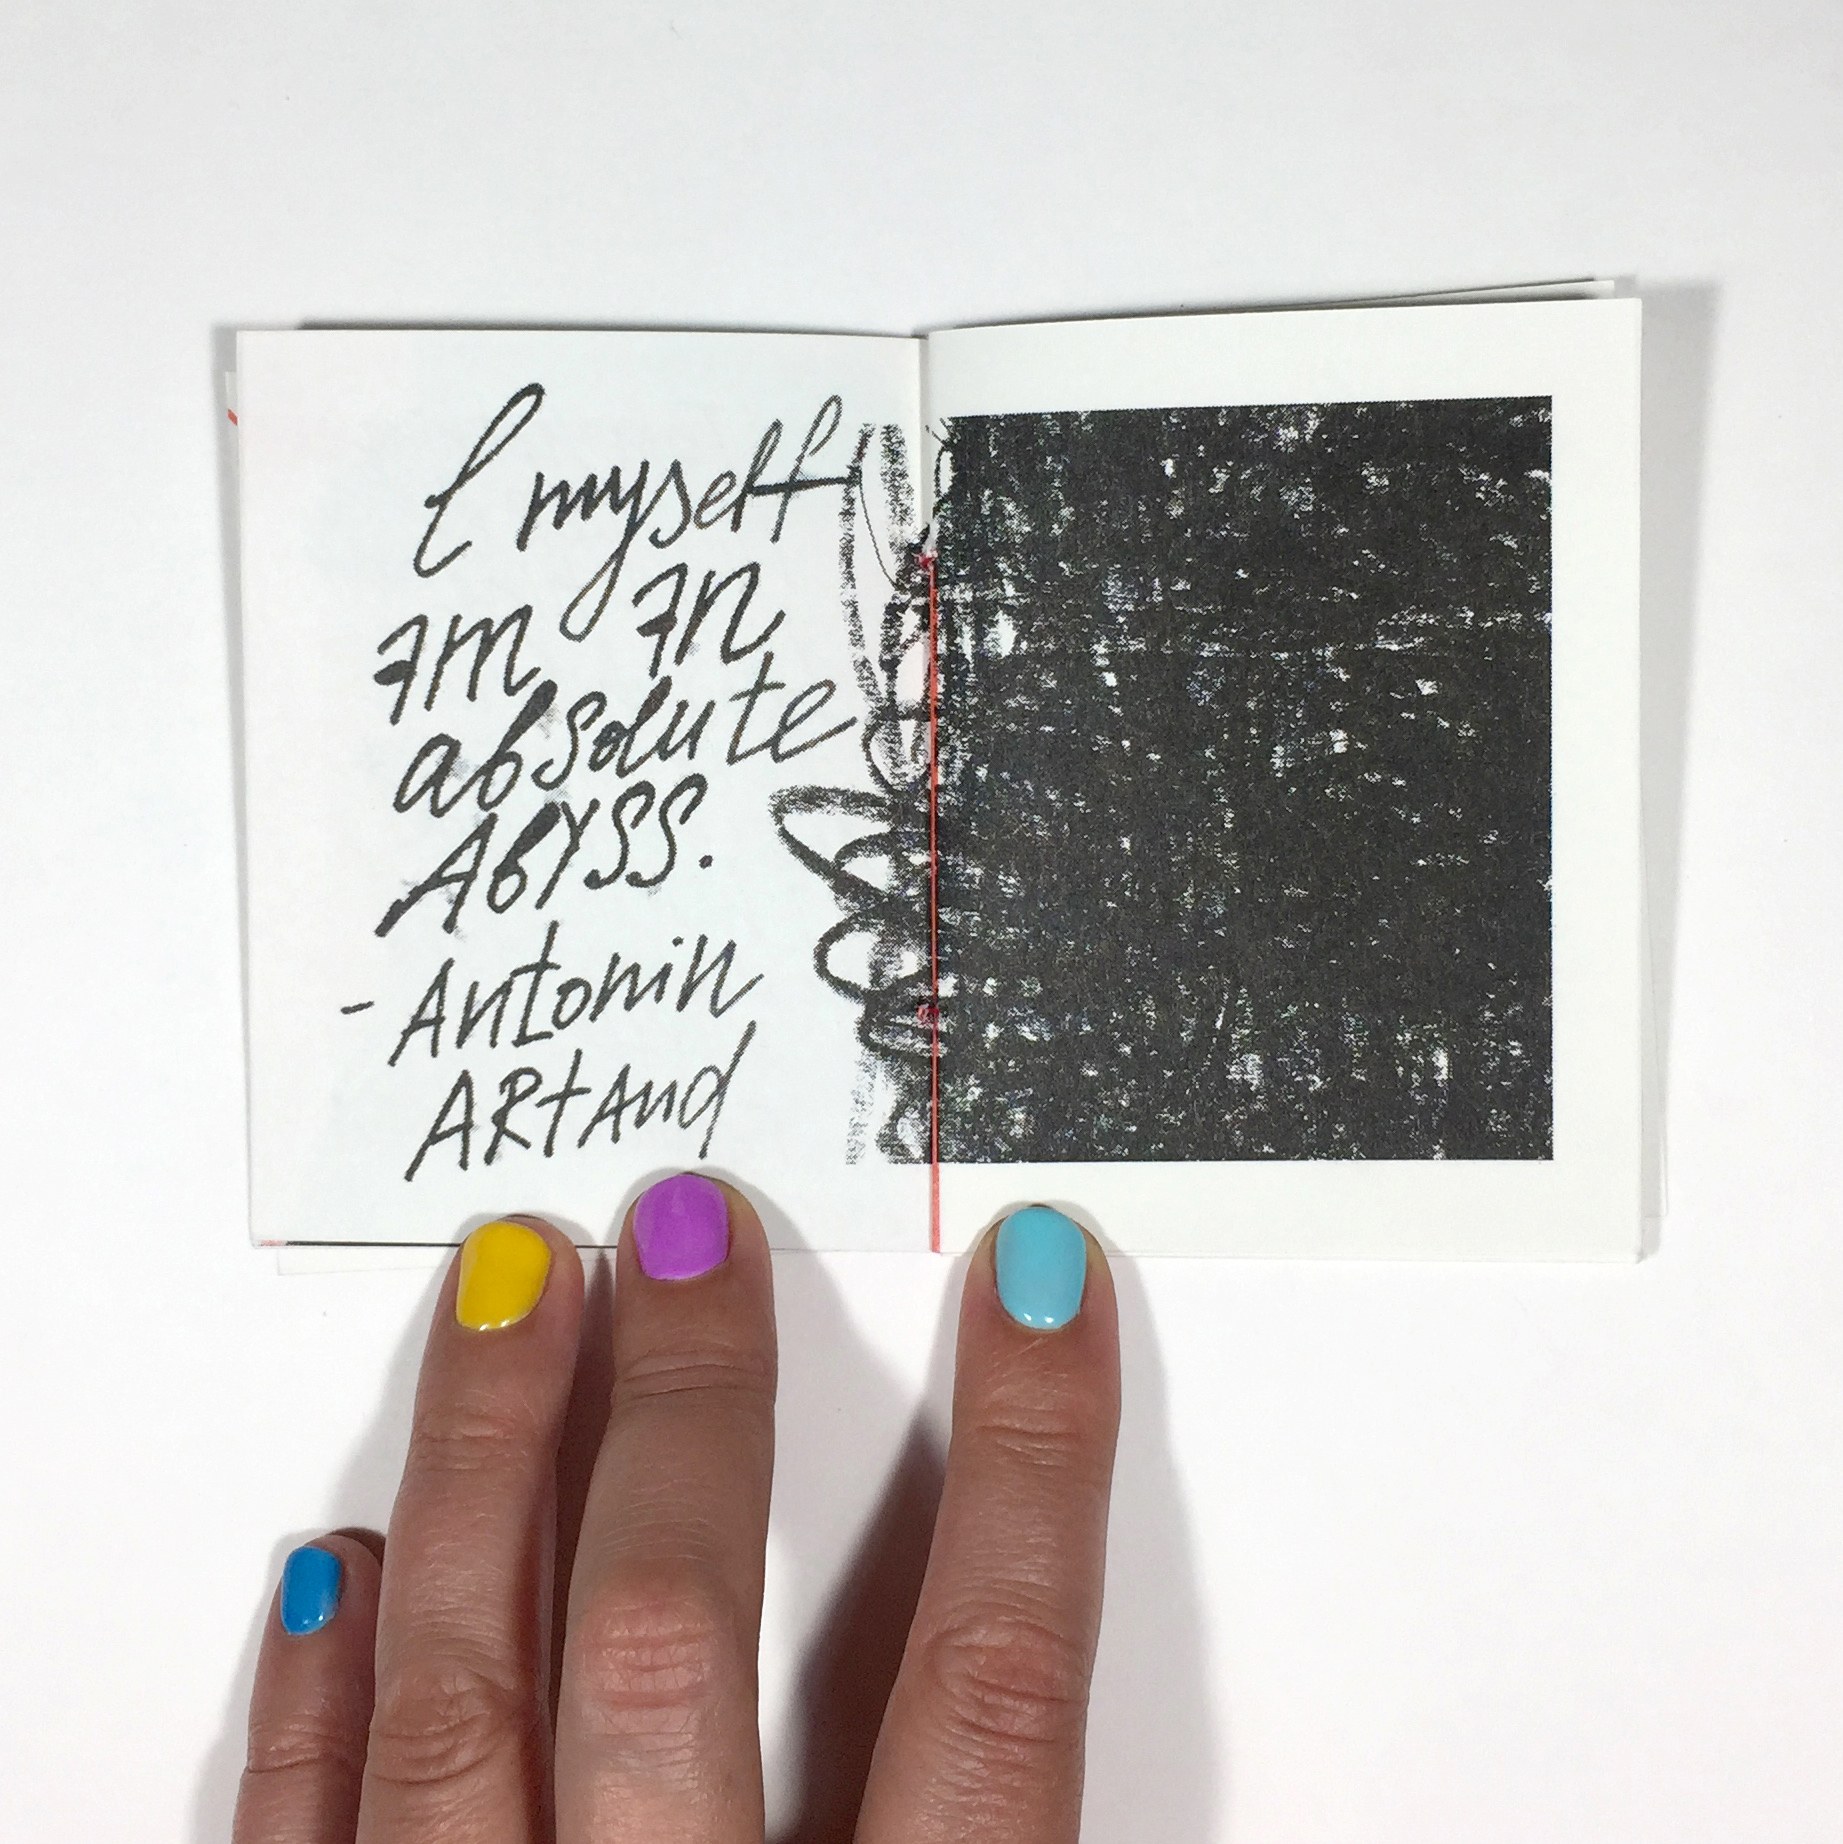 I myself
am an
absolute
Abyss.
- Antonin
ARtAud